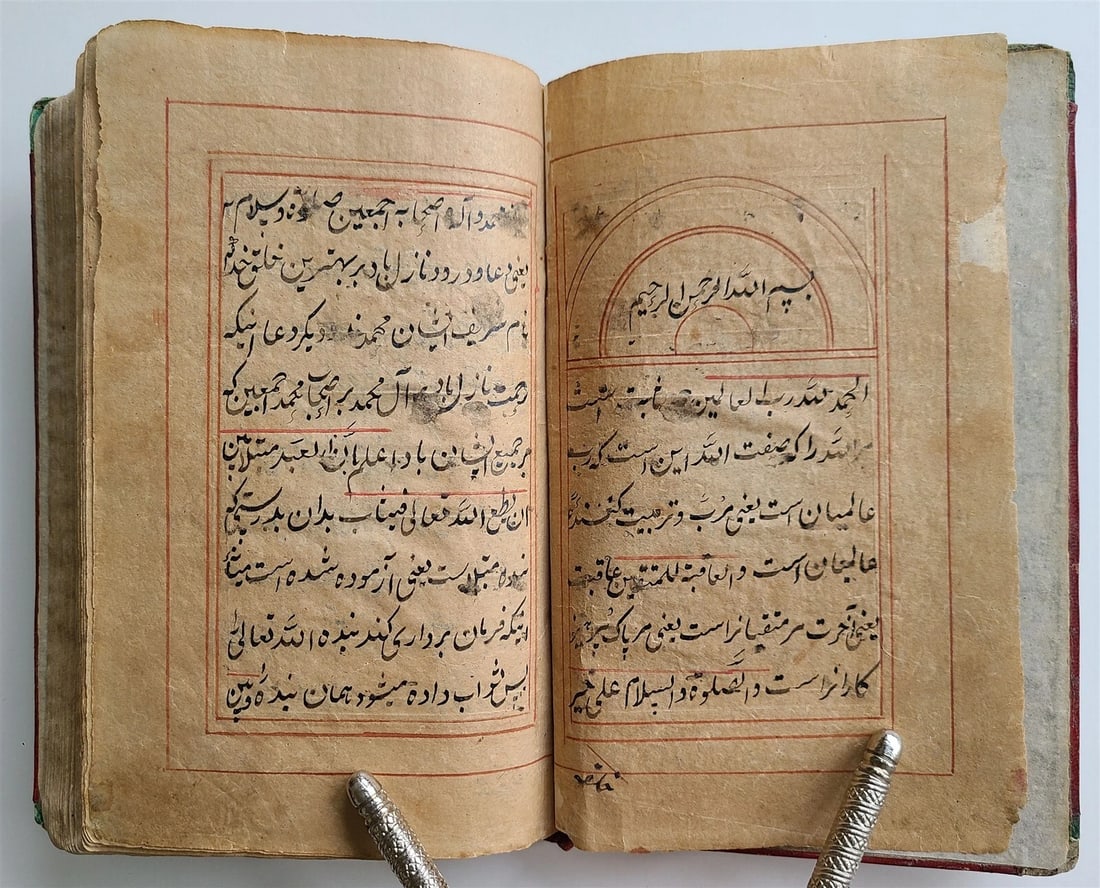 بسم الله الرحمن الرحیم
الحمد لله رب العالمین است
مر الله را که صفت الله این است که رب
عالمیان است یعنی مرب و تربیت کنندهٔ
عالمیان است والعاقبة للمتقین عاقبت
یعنی آخرت مر متقیانراست یعنی مر پاک
کارانراست والصلوة والسلام علی خیر
محمد و آله اصحابه اجمعین صلوة و سلام
یعنی دعا و درود نازل باد بر بهترین خلق خدا که
نام شریف ایشان محمد دیکر دعا اینکه
رحمت نازل باد بر آل محمد بر اصحاب محمد اجمعین که
بر جمیع ایشان باد اعلم بان العبد مبتلا بین
ان یطیع الله تعالی فیثاب بدان بدرستیکه
بنده مبتلاست یعنی آزموده شده است میانهٔ
اینکه فرمان برداری کند بنده الله تعالی را
پس ثواب داده میشود همان بنده و بین